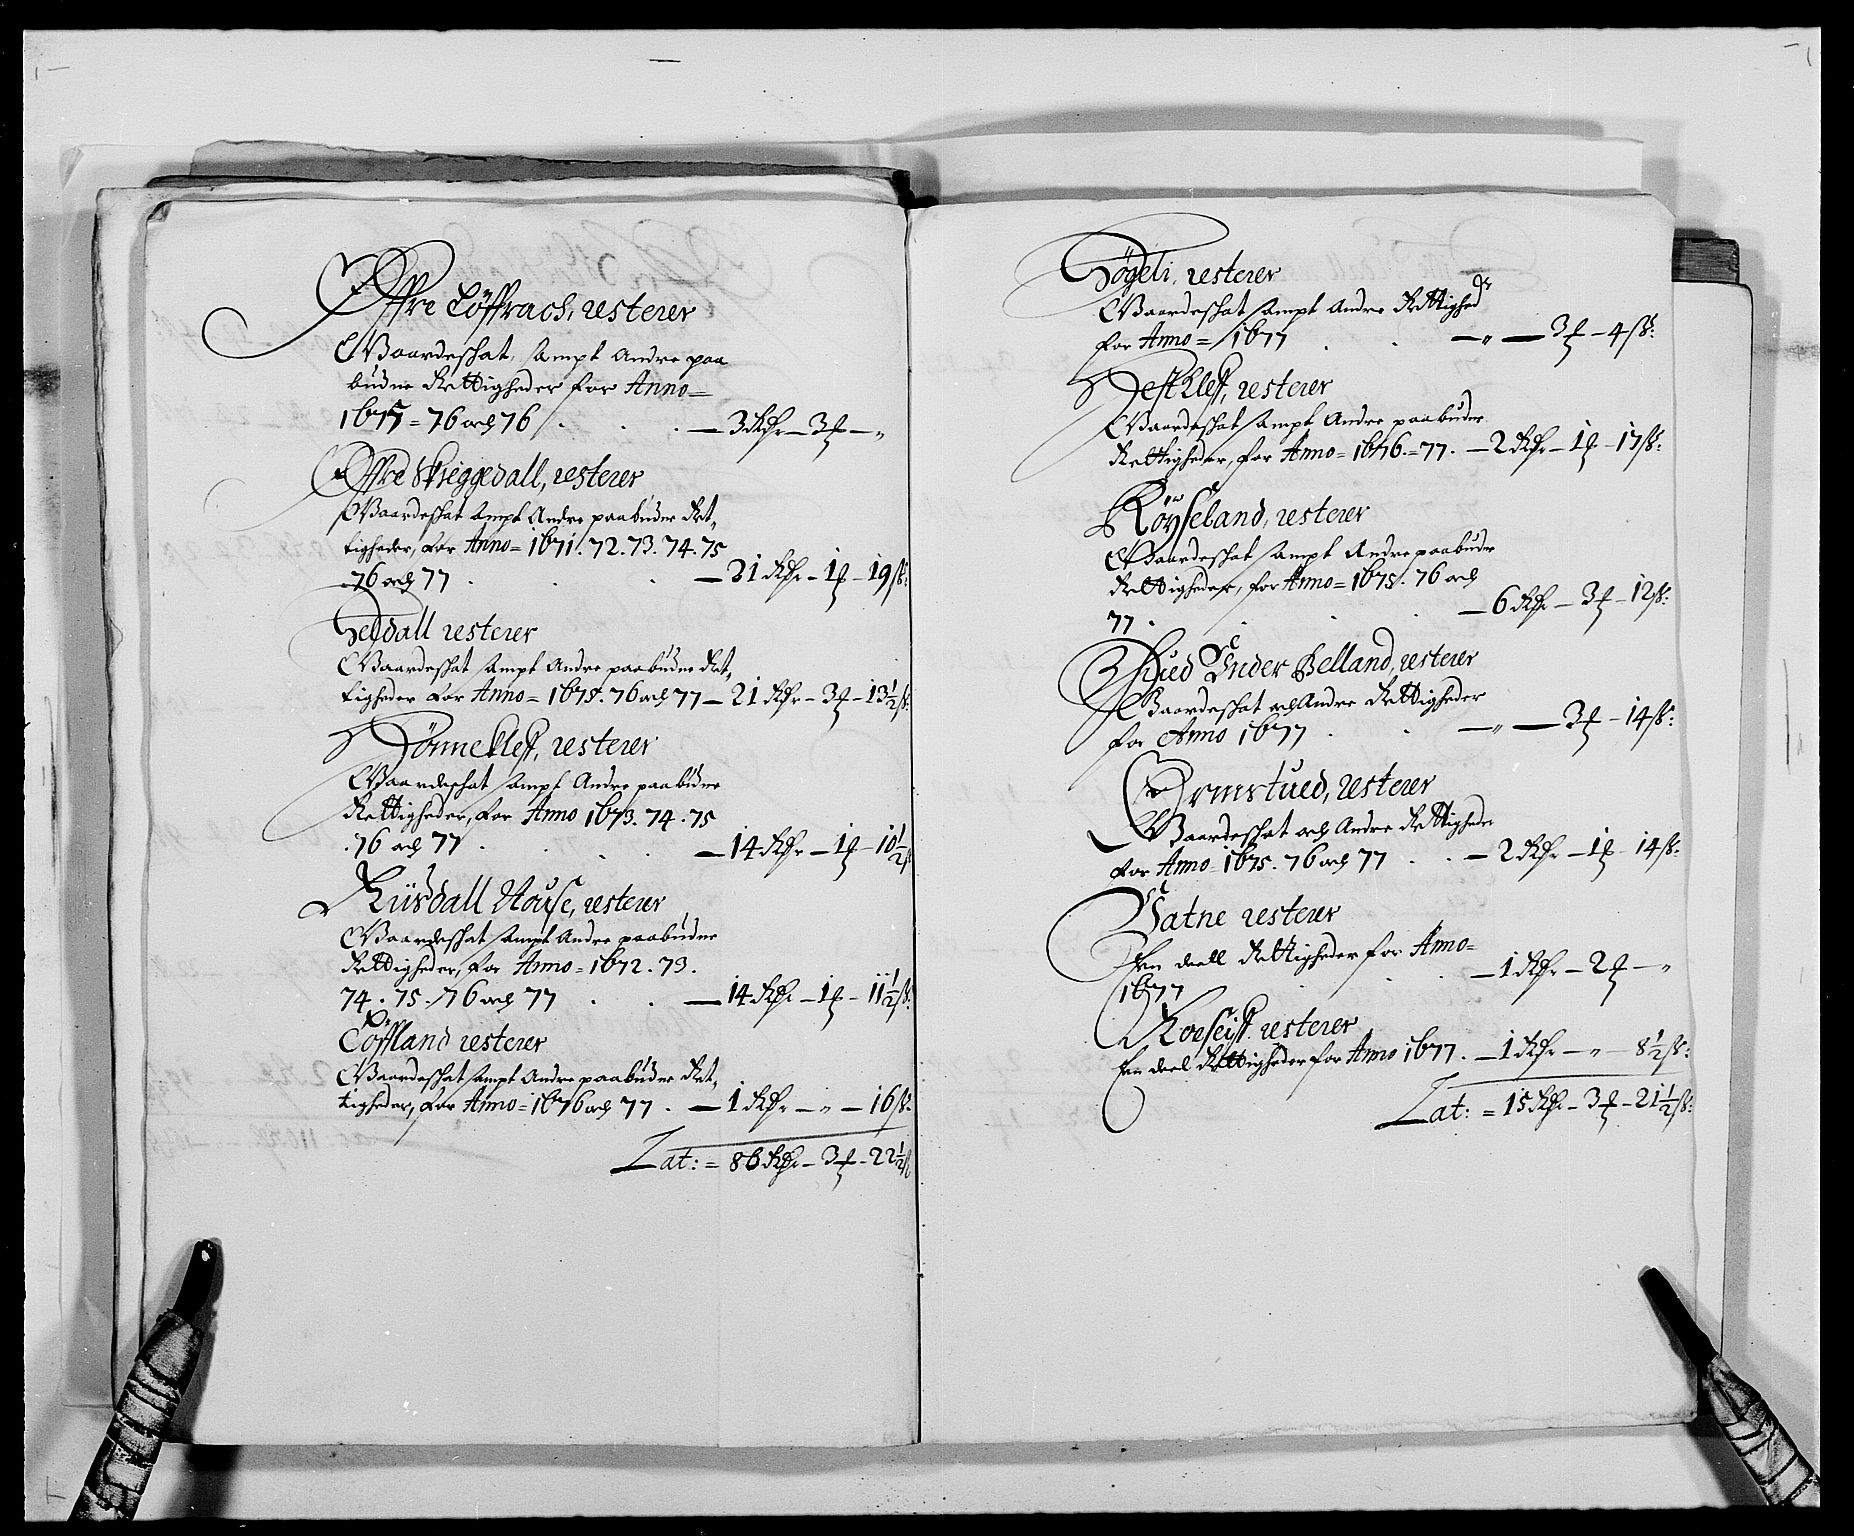 Øffre Løffrach, resterer
Gaardeschat, sampt Andre paa
budne Rettigheder for Anno=
1675 = 76 och 76 . . . — 3 Rdr — 3 ƒ — „
Øffre Skreggedall, resterer
Gaardeschat sampt Andre paabudne Ret„
tigheder, for Anno= 1671. 72. 73. 74. 75
76 och 77 . . . — 31 Rdr — 1 ƒ — 19 ß:
Seldall resterer
Gaardeschat sampt Andre paabudne Ret„
tigheder for Anno= 1675. 76 och 77 — 21 Rdr — 3 ƒ — 13½ ß:
Dönnekleff, resterer
Gaardeschat sampt Andre paabudne
Rettigheder, for Anno 1673. 74. 75
.76 och 77 . . . — 14 Rdr — 1 ƒ — 10½ ß
Riisdall House, resterer
Gaardeschat sampt Andre paabudne
Rettigheder, for Anno= 1672. 73.
74. 75. 76 och 77 . . — 14 Rdr — 1 ƒ — 11½ ß:
Löffland resterer
Gaardeschat sampt Andre paabudne Ret„
tigheder, for Anno= 1676 och 77 . — 1 Rdr — „ — 16 ß:
Lat: = 86 Rdr — 3 ƒ — 22½ ß
Högeli, resterer
Gaardeschat sampt Andre Rettighedr
for Anno= 1677 . . — „ — 3 ƒ — 4 ß:
Hestkleff, resterer
Gaardeschat sampt Andre paabudne
Rettigheder, for Anno= 1676.=77. — 2 Rdr — 1 ƒ — 17 ß:
Röyseland, resterer
Gaardeschat sampt Andre paabudne
Rettigheder, for Anno= 1675. 76 och
77 . . . — 6 Rdr — 3 ƒ — 12 ß:
Under Belland, resterer
Gaardeschat och Andre Rettigheder
for Anno 1677 . . — „ — 3 ƒ — 14 ß:
Ormstued, resterer
Gaardeschat och Andre Rettigheder
for Anno= 1675. 76 och 77 . . — 2 Rdr — 1 ƒ — 14 ß:
Vatne resterer
Een deell Rettigheder for Anno=
1677 . . — 1 Rdr — 2 ƒ — „
resterer
Een deel Rettigheder for Anno 1677. — 1 Rdr — „ — 8½ ß:
Lat: = 15 Rdr — 3 ƒ — 21½ ß: